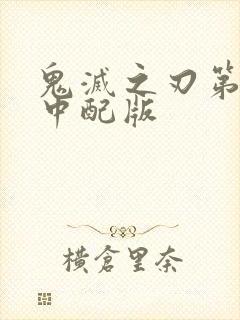 鬼滅之刃第
中配版
橫倉里奈